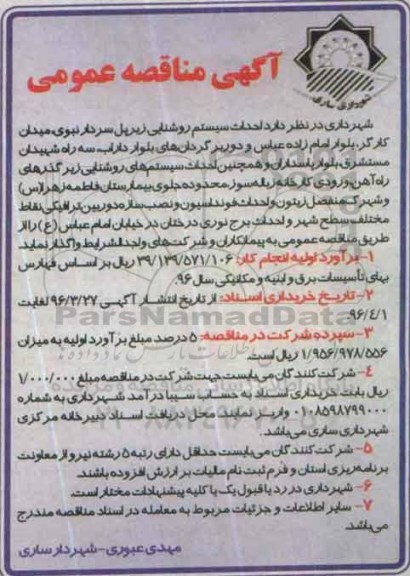 شهرداری ساری
آگهی مناقصه عمومی
شهرداری در نظر دارد احداث سیستم روشنایی زیر پل سردار نبوی، میدان
کارگر، بلوار امام زاده عباس و دوربرگردان‌های بلوار داراب، سه راه شهیدان
مستشرق، بلوار پاسداران و همچنین احداث سیستم‌های روشنایی زیر گذرهای
راه آهن ورودی کارخانه زباله سوز، محدوده جلوی بیمارستان فاطمه زهرا(س)
و شهرک منفصل زیتون واحداث فونداسیون و نصب سازه دوربین ترافیکی نقاط
مختلف سطح شهر و احداث برج نوری درختان در خیابان امام عباس (ع) را از
طریق مناقصه عمومی به پیمانکاران و شرکت های واجد الشرایط واگذار نماید.
۱- برآورد اولیه انجام کار: ۳۹/۱۳۹/۵۷۱/۱۰۶ ریال بر اساس فهارس
بهای تأسیسات برق و ابنیه و مکانیکی سال ۹۶.
۲- تاریخ خریداری اسناد: از تاریخ انتشار آگهی ۹۶/۳/۲۷ لغایت
۹۶/۴/۱
۳- سپرده شرکت در مناقصه: ۵ درصد مبلغ برآورد اولیه به میزان
۱/۹۵۶/۹۷۸/۵۵۶ ریال است.
۴- شرکت کنندگان می بایست جهت شرکت در مناقصه مبلغ ۱/۰۰۰/۰۰۰
ریال بابت خریداری اسناد به حساب سیبا درآمد شهرداری به شماره
۰۱۰۸۵۹۸۷۹۹۰۰۰ واریز نمایند محل دریافت اسناد دبیرخانه مرکزی
شهرداری ساری می باشد.
۵- شرکت کنندگان می بایست حداقل دارای رتبه ۵ رشته نیرو از معاونت
برنامه ریزی استان و فرم ثبت نام مالیات بر ارزش افزوده باشند.
۶- شهرداری در رد یا قبول یک یا کلیه پیشنهادات مختار است.
۷- سایر اطلاعات و جزئیات مربوط به معامله در اسناد مناقصه مندرج
می باشد.
مهدی عبوری - شهردار ساری
ParsNamadData